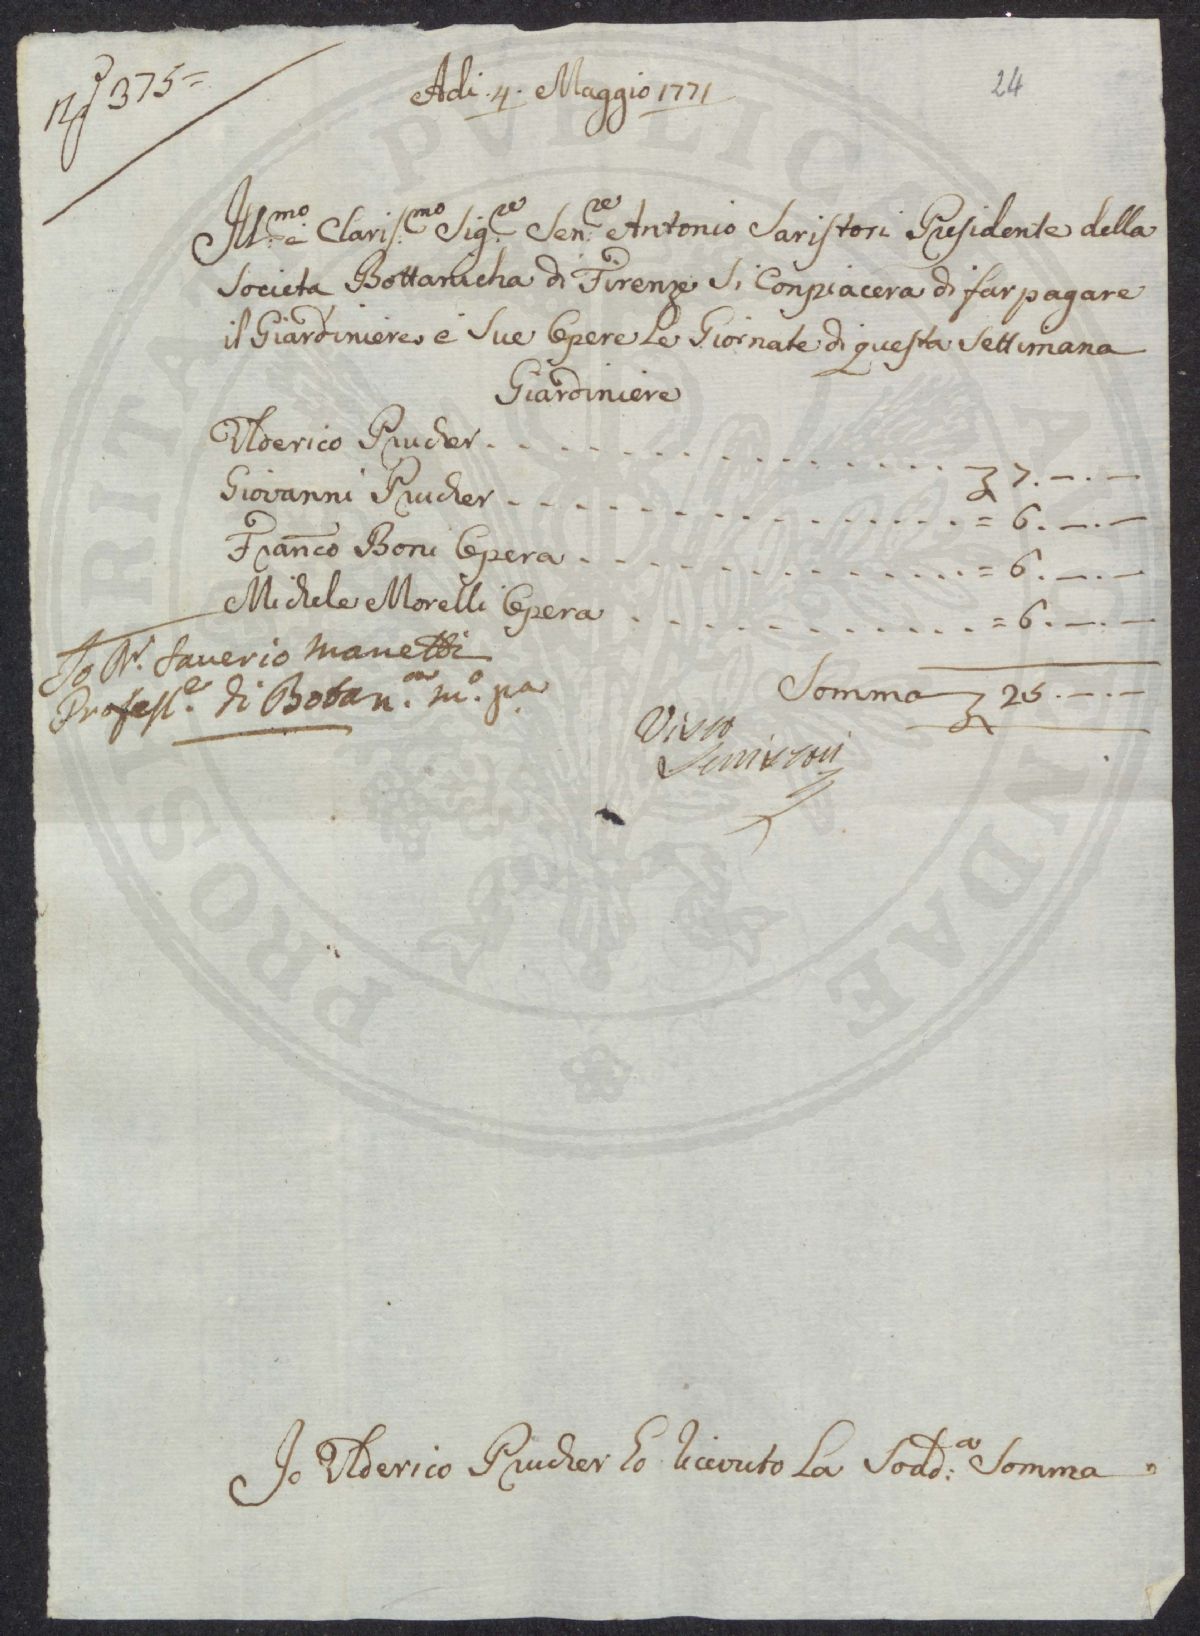 N.º 375=
Adi .4. Maggio 1771
24
Ill.mo e Claris.mo Sig.re Sen.re Antonio Saristori Presidente della
Societa Bottanicha di Firenze Si Conpiacera di far pagare
il Giardiniere, e Sue Opere Le Giornate di questa Settimana
Giardiniere
Ulderico Prucher . . . . . . . . . . . . . . . 7. —.—
Giovanni Prucher . . . . . . . . . . . . . . . = 6. —.—
Franco Boni Opera . . . . . . . . . . . . . = 6. —.—
Michele Morelli Opera . . . . . . . . . . . = 6. —.—
Io Dr. Saverio Manetti
Profess.e di Botan.ca m.o p.a
Somma 25. —.—
Visto
Io Ulderico Prucher ho ricevuto La Sodd.a Somma
PROSPERITATI PVBLICAE